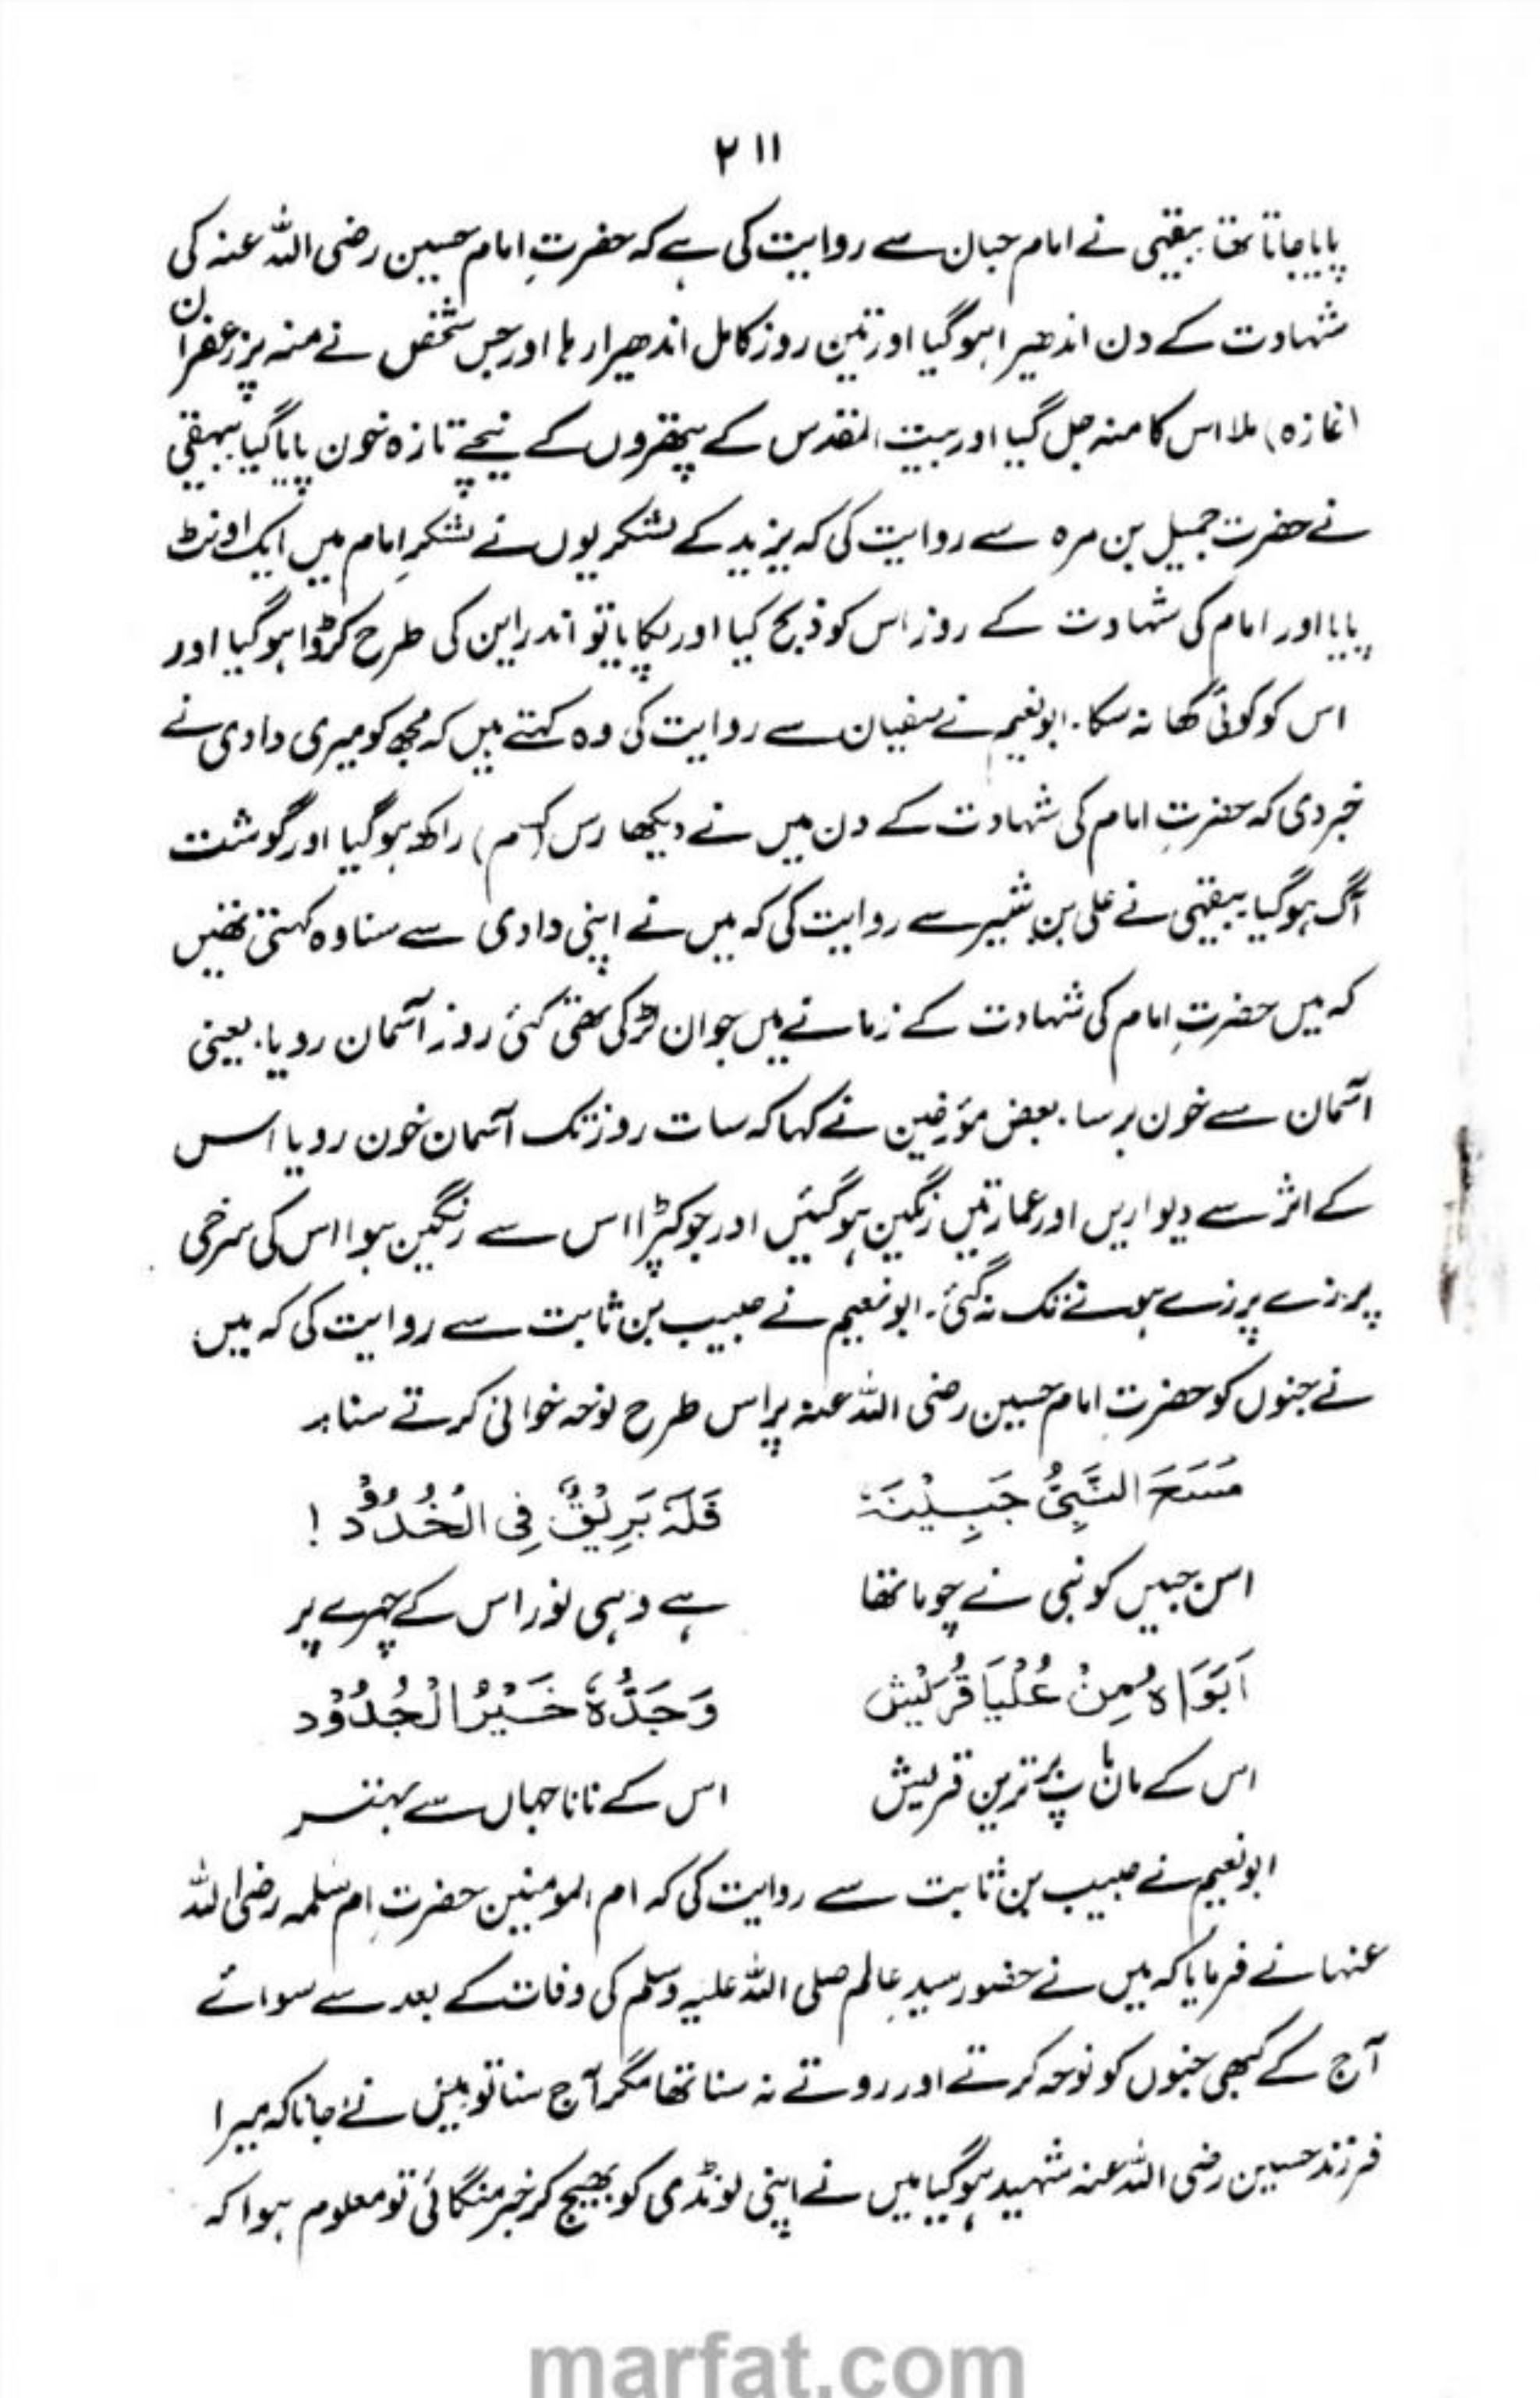 ۲۱۱
پایا جاتا تھا بیہقی نے امام حبان سے روایت کی ہے کہ حضرتِ امام حسین رضی اللہ عنہ کی
شہادت کے دن اندھیرا ہوگیا اور تین روز کامل اندھیرا رہا اور جس شخص نے منہ پر زعفران
(غازہ) ملا اس کا منہ جل گیا اور بیت المقدس کے پتھروں کے نیچے تازہ خون پایا گیا بیہقی
نے حضرت جمیل بن مرہ سے روایت کی کہ یزید کے لشکریوں نے لشکرِ امام میں ایک اونٹ
پایا اور امام کی شہادت کے روز اس کو ذبح کیا اور پکایا تو اندراین کی طرح کڑوا ہوگیا اور
اس کو کوئی کھا نہ سکا۔ ابونعیم نے سفیان سے روایت کی وہ کہتے ہیں کہ مجھ کو میری دادی نے
خبر دی کہ حضرتِ امام کی شہادت کے دن میں نے دیکھا رس (کسم) راکھ ہوگیا اور گوشت
آگ ہوگیا بیہقی نے علی بن شبیر سے روایت کی کہ میں نے اپنی دادی سے سنا وہ کہتی تھیں
کہ میں حضرتِ امام کی شہادت کے زمانے میں جوان لڑکی تھی کئی روز آسمان رویا۔ یعنی
آسمان سے خون برسا۔ بعض مؤرخین نے کہا کہ سات روز تک آسمان خون رویا اس
کے اثر سے دیواریں اور عمارتیں رنگین ہوگئیں اور جو کپڑا اس سے رنگین ہوا اس کی سرخی
پرزے پرزے ہونے تک نہ گئی۔ ابونعیم نے حبیب بن ثابت سے روایت کی کہ میں
نے جنوں کو حضرت امام حسین رضی اللہ عنہ پر اس طرح نوحہ خوانی کرتے سنا؂
مَسَحَ النَّبِیُّ جَبِیْنَہٗ فَلَہٗ بَرِیْقٌ فِی الْخُدُوْدِ !
اس جبیں کو نبی نے چوما تھا ہے وہی نور اس کے چہرے پر
اَبَوَاہُ مِنْ عُلْیَا قُرَیْش وَجَدُّہٗ خَیْرُ الْجُدُوْد
اس کے ماں باپ برترین قریش اس کے نانا جہاں سے بہتر
ابونعیم نے حبیب بن ثابت سے روایت کی کہ ام المومنین حضرتِ ام سلمہ رضی اللہ
عنہا نے فرمایا کہ میں نے حضور سید عالم صلی اللہ علیہ وسلم کی وفات کے بعد سے سوائے
آج کے کبھی جنوں کو نوحہ کرتے اور روتے نہ سنا تھا مگر آج سنا تو میں نے جانا کہ میرا
فرزند حسین رضی اللہ عنہ شہید ہوگیا میں نے اپنی لونڈی کو بھیج کر خبر منگائی تو معلوم ہوا کہ
marfat.com